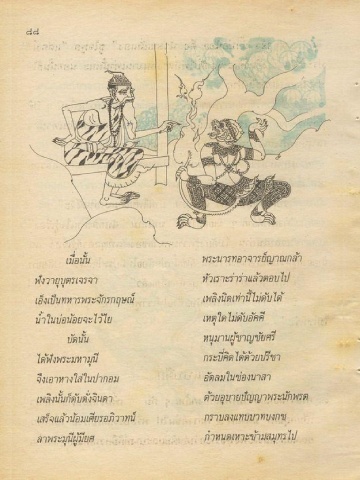 ๘๘
เมื่อนั้น พระนารทอาจารย์ญาณกล้า
ฟังวายุบุตรเจรจา หัวเราะร่าร่าแล้วตอบไป
เอ็งเป็นทหารพระจักรกฤษณ์ เพลิงนิดเท่านี้ไม่ดับได้
น้ำในบ่อน้อยจะไว้ไย เหตุใดไม่ดับอัคคี
บัดนั้น หนุมานผู้ชาญชัยศรี
ได้ฟังพระมหามุนี กระบี่คิดได้ด้วยปรีชา
จึงเอาหางใส่ในปากอม อัดลมในช่องนาสา
เพลิงนั้นก็ดับดั่งจินดา ด้วยอุบายปัญญาพระนักพรต
เสร็จแล้วน้อมเศียรอภิวาทน์ กราบลงแทบบาทบงกช
ลาพระมุนีผู้มียศ กำหนดเหาะข้ามสมุทรไป